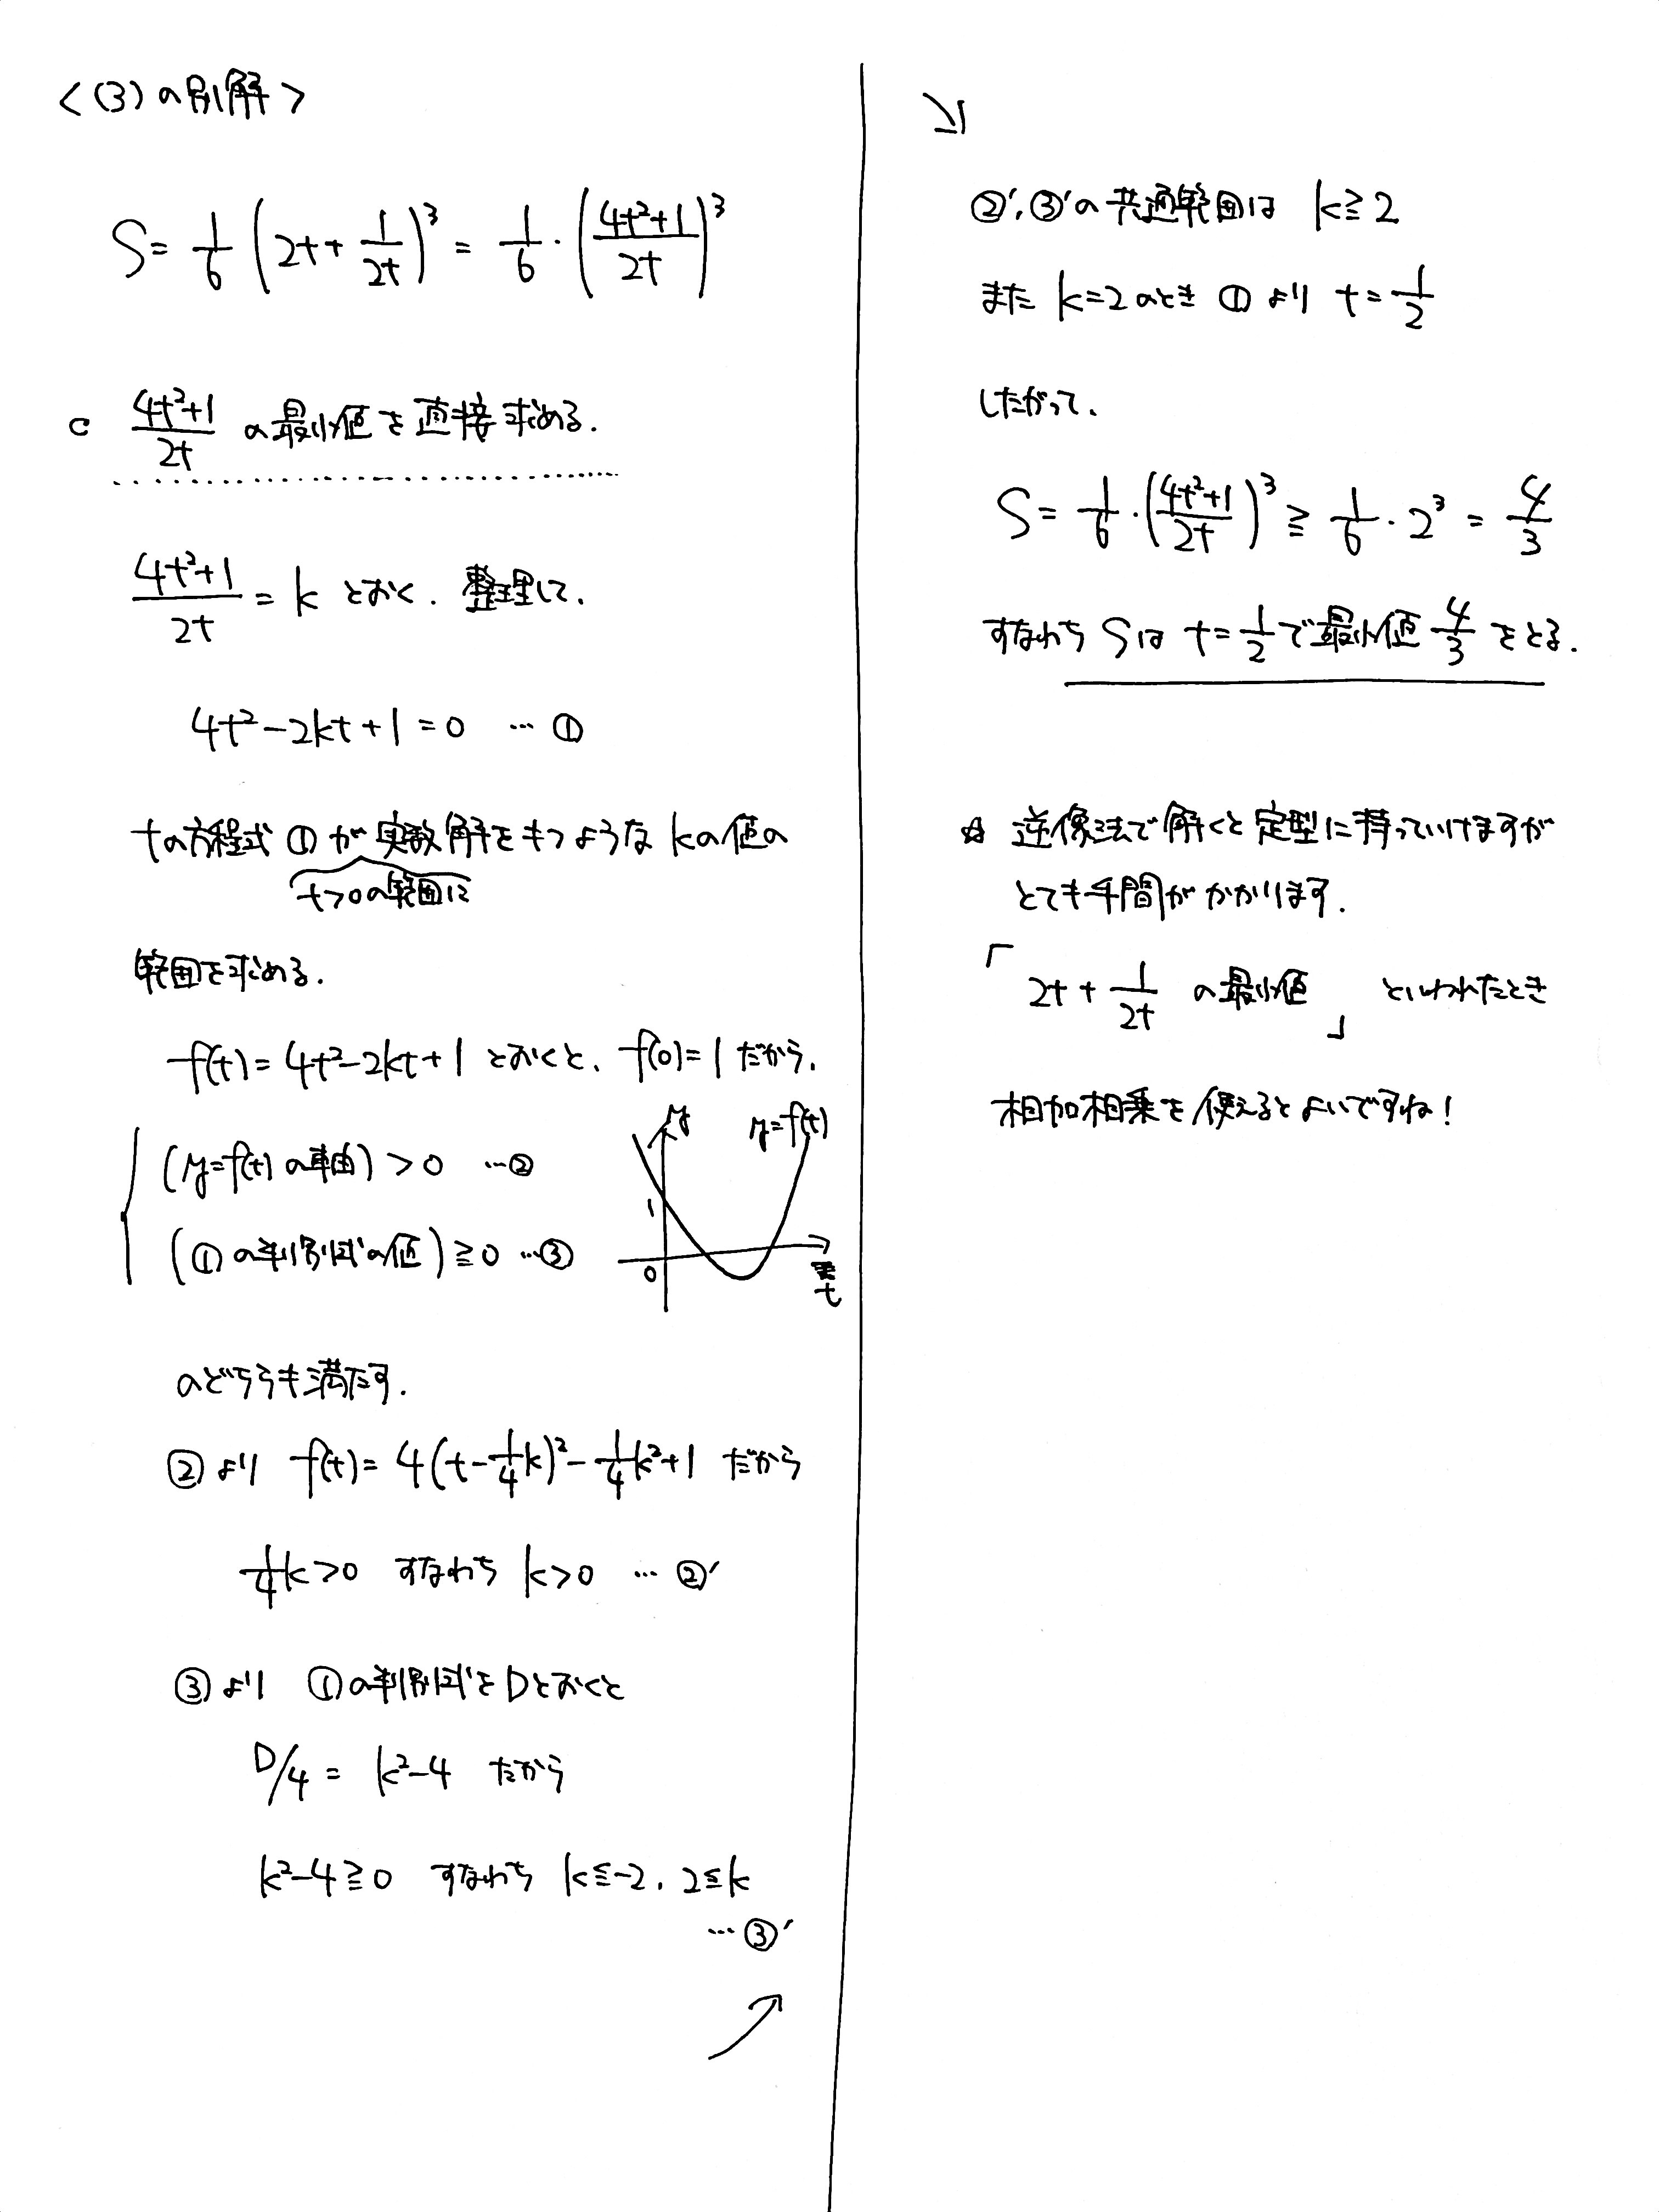 <(3)の別解>
S = 1/6 (2t + 1/2t)³ = 1/6・((4t²+1)/2t)³
(4t²+1)/2t の最小値を直接求める.
(4t²+1)/2t = k とおく. 整理して,
4t²-2kt+1=0 … ①
tの方程式 ① が 実数解をもつような kの値の
t>0の範囲に
範囲を求める.
f(t)=4t²-2kt+1 とおくと, f(0)=1 だから,
y
y=f(t)
(y=f(t) の軸) > 0 …②
1
(① の判別式の値) ≧ 0 …③
0
t
のどちらも満たす.
② より f(t)= 4(t-1/4k)²-1/4k²+1 だから
1/4k>0 すなわち k>0 … ②′
③ より ①の判別式をDとおくと
D/4 = k²-4 だから
k²-4≧0 すなわち k≦-2, 2≦k
… ③′
②′, ③′の共通範囲は k≧2
また k=2のとき ① より t=1/2
したがって,
S = 1/6・((4t²+1)/2t)³ ≧ 1/6・2³ = 4/3
すなわち Sは t=1/2で最小値 4/3 をとる.
☆ 逆像法で解くと定型に持っていけますが
とても手間がかかります.
「2t + 1/2t の最小値」 といわれたとき
相加相乗を使えるとよいですね!